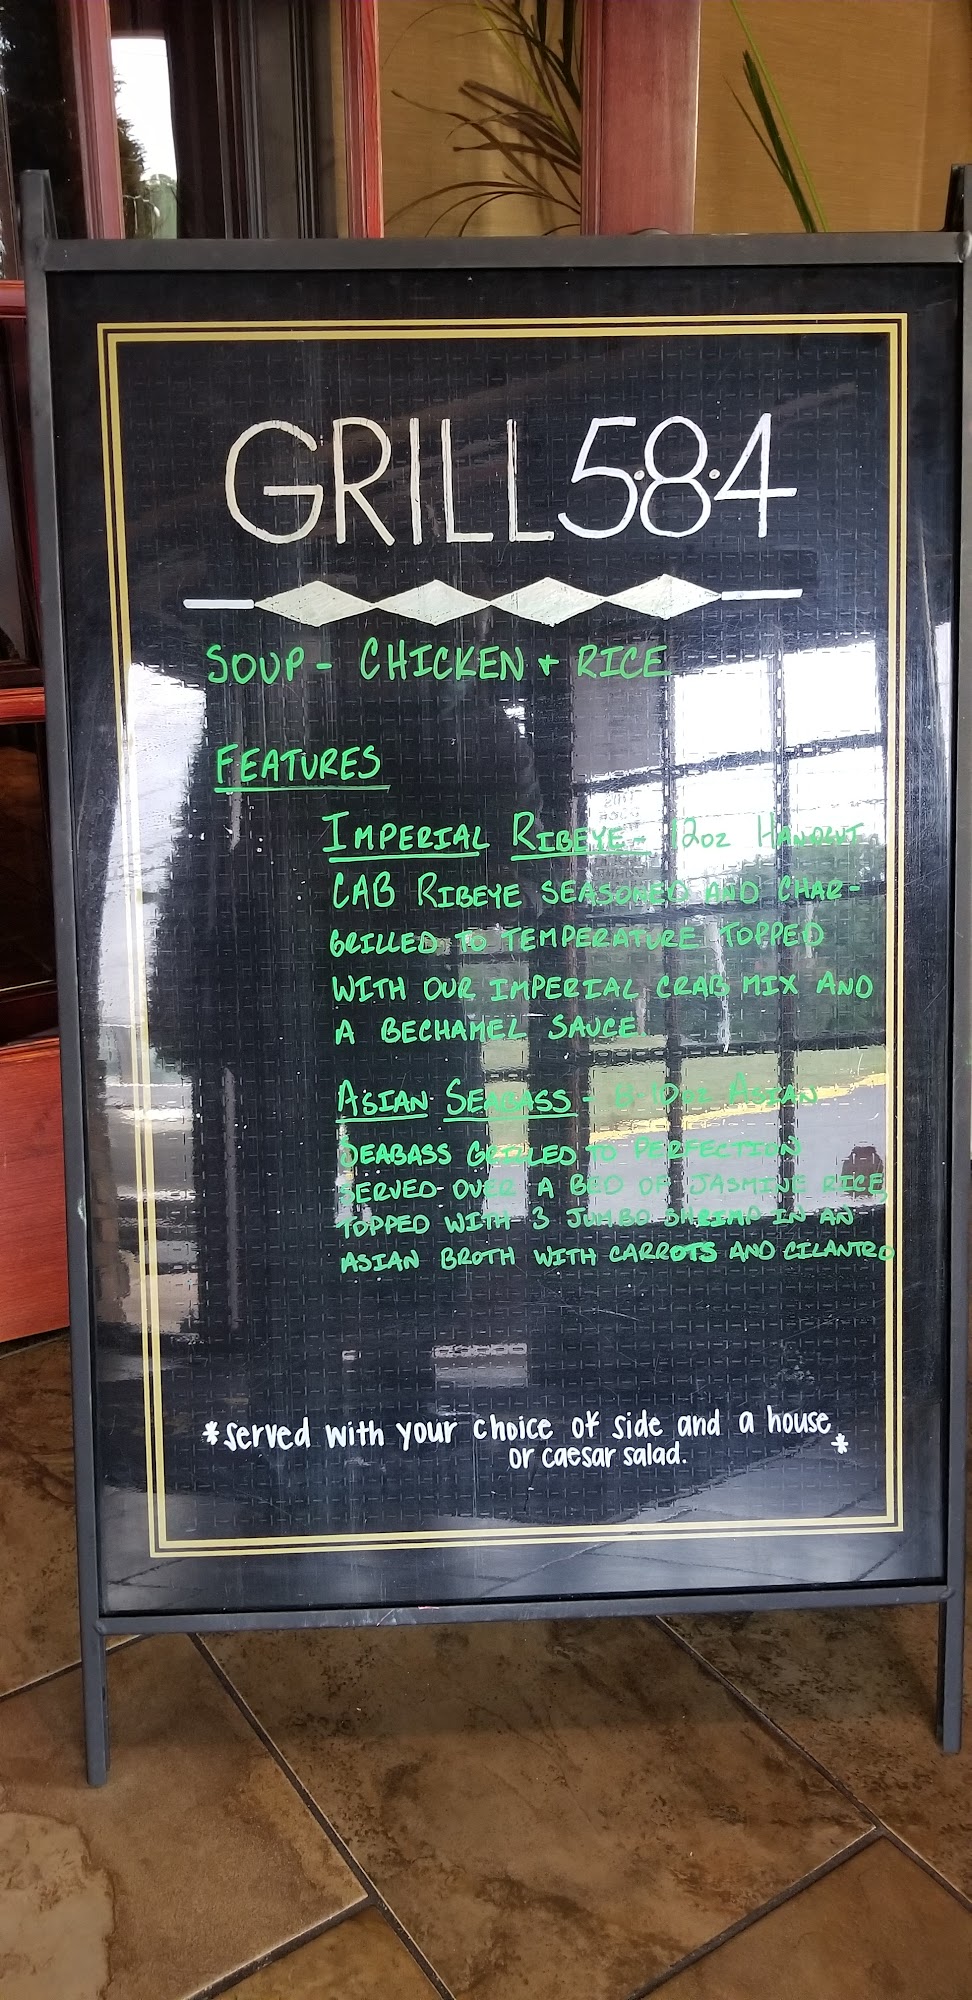 GRILL 5·8·4
SOUP - CHICKEN + RICE
FEATURES
IMPERIAL RIBEYE - 12oz HANDCUT
CAB RIBEYE SEASONED AND CHAR-
GRILLED TO TEMPERATURE TOPPED
WITH OUR IMPERIAL CRAB MIX AND
A BECHAMEL SAUCE
ASIAN SEABASS - 8-10oz ASIAN
SEABASS GRILLED TO PERFECTION
SERVED OVER A BED OF JASMINE RICE
TOPPED WITH 3 JUMBO SHRIMP IN AN
ASIAN BROTH WITH CARROTS AND CILANTRO
*served with your choice of side and a house
or caesar salad.*